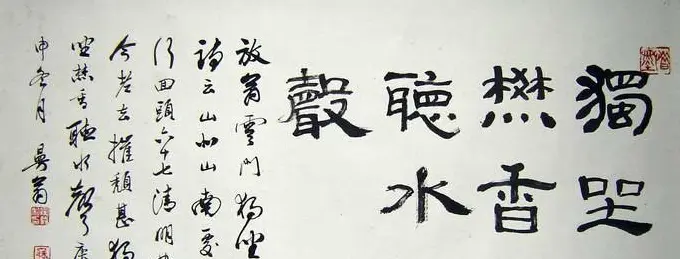 獨坐
焚香
聽水
聲
放翁雲門獨坐
詩云山北山南處
行回頭六十七清明
今老去摧頹甚獨
坐焚香聽水聲庚
申冬月 翁